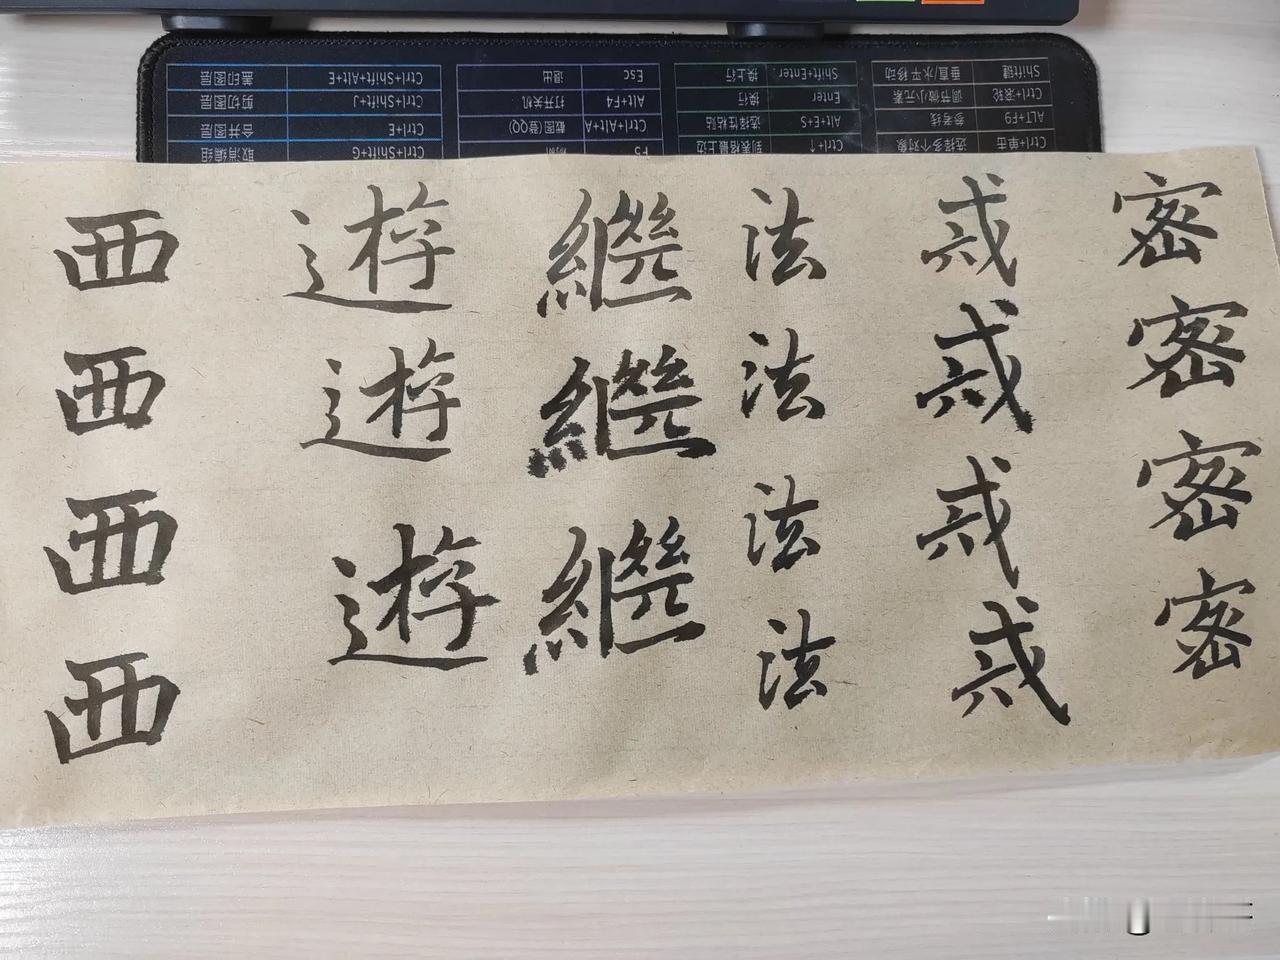 密密密密
戒戒戒戒
法法法法
繼繼繼
遊遊遊
西西西西
Ctrl+单击 选择多个对象 Ctrl+↑ 到表格最上边 F5 刷新 Ctrl+Shift+G 取消编组
ALT+F9 参考线 Alt+E+S 选择性粘贴 Ctrl+Alt+A 截图(登QQ) Ctrl+E 合并图层
Ctrl+滚轮 调节微小元素 Enter 换行 Alt+F4 打开关机 Ctrl+Shift+J 剪切图层
Shift键 垂直/水平移动 Shift+Enter 换上行 Esc 退出 Ctrl+Shift+Alt+E 盖印图层